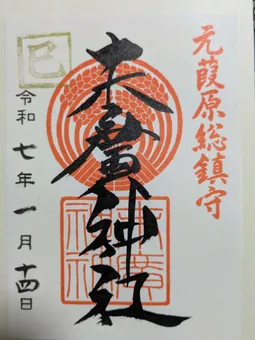 元葭原総鎮守
末廣神社
巳
令和七年一月十四日